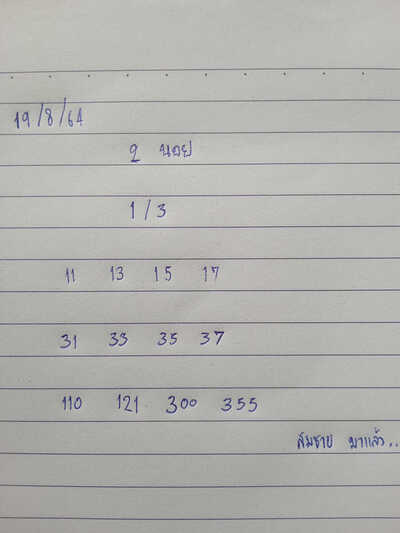 19/8/64
2 นอย
1/3
11 13 15 17
31 33 35 37
110 121 300 355
สมชาย มาแล้ว..